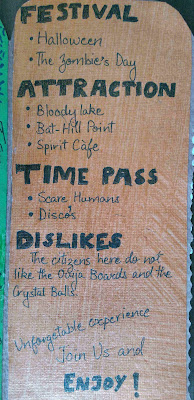 FESTIVAL
• Halloween
• The Zombie's Day
ATTRACTION
• Bloody lake
• Bat-Hill Point
• Spirit Cafe
TIME PASS
• Scare Humans
• Disco's
DISLIKES
The citizens here do not
like the Ouija Boards and the
Crystal Balls.
Unforgetable experience
Join Us and
ENJOY!